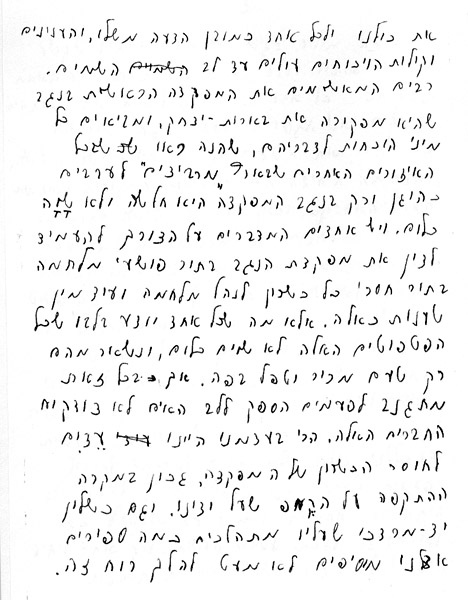 את כולנו ולכל אחד כמובן הדעה משלו, והענינים
וקולות הויכוחים עולים עד לב השמיים השמים.
רבים המאשימים את המפקדה הראשית בנגב
שהיא מפקירה את בארות-יצחק, ומביאים כל
מיני הוכחות לדבריהם, שהנה ראו שבכל
האיזורים האחרים שבארץ "מרביצים" לערבים
כהוגן ורק בנגב המפקדה היא חלשה ולא שוה
כלום. ויש אחדים המדברים על הצורך להעמיד
לדין את מפקדת הנגב בתור פושעי מלחמה
בתור חסרי כל כשרון לנהל מלחמה ועוד מין
טענות כאלה. אלא מה שכל אחד יודע בלבו שכל
הפטפוטים האלה לא שוים כלום, ונשאר מהם
רק טעם מריר וטפל בפה. אך בכל זאת
מתגנב לפעמים הספק ללב האם לא צודקים
החברים האלה. הרי בעצמנו היינו עדים
לחוסר הכשרון של המפקדה. נכון במקרה
ההתקפה על הקמפ שעל ידינו. וגם כשלון
יד-מרדכי שעליו מתהלכים כמה סיפורים
אצלנו מוסיפים לא מעט להלך רוח זה.